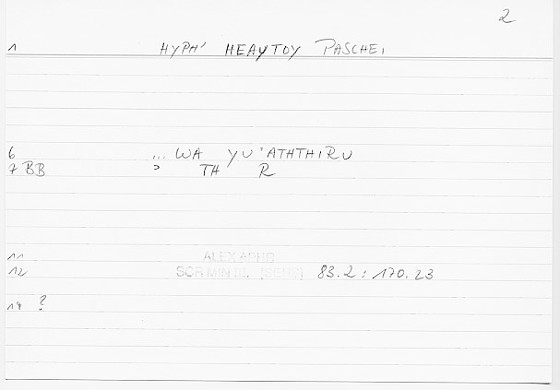 2
1 HYPH' HEAYTOY PASCHEI
6 ... WA YU'ATHTHIRU
7 BB > TH R
11 ALEX APHR
12 SCR MIN III. 83.2 : 170.23
14 ?